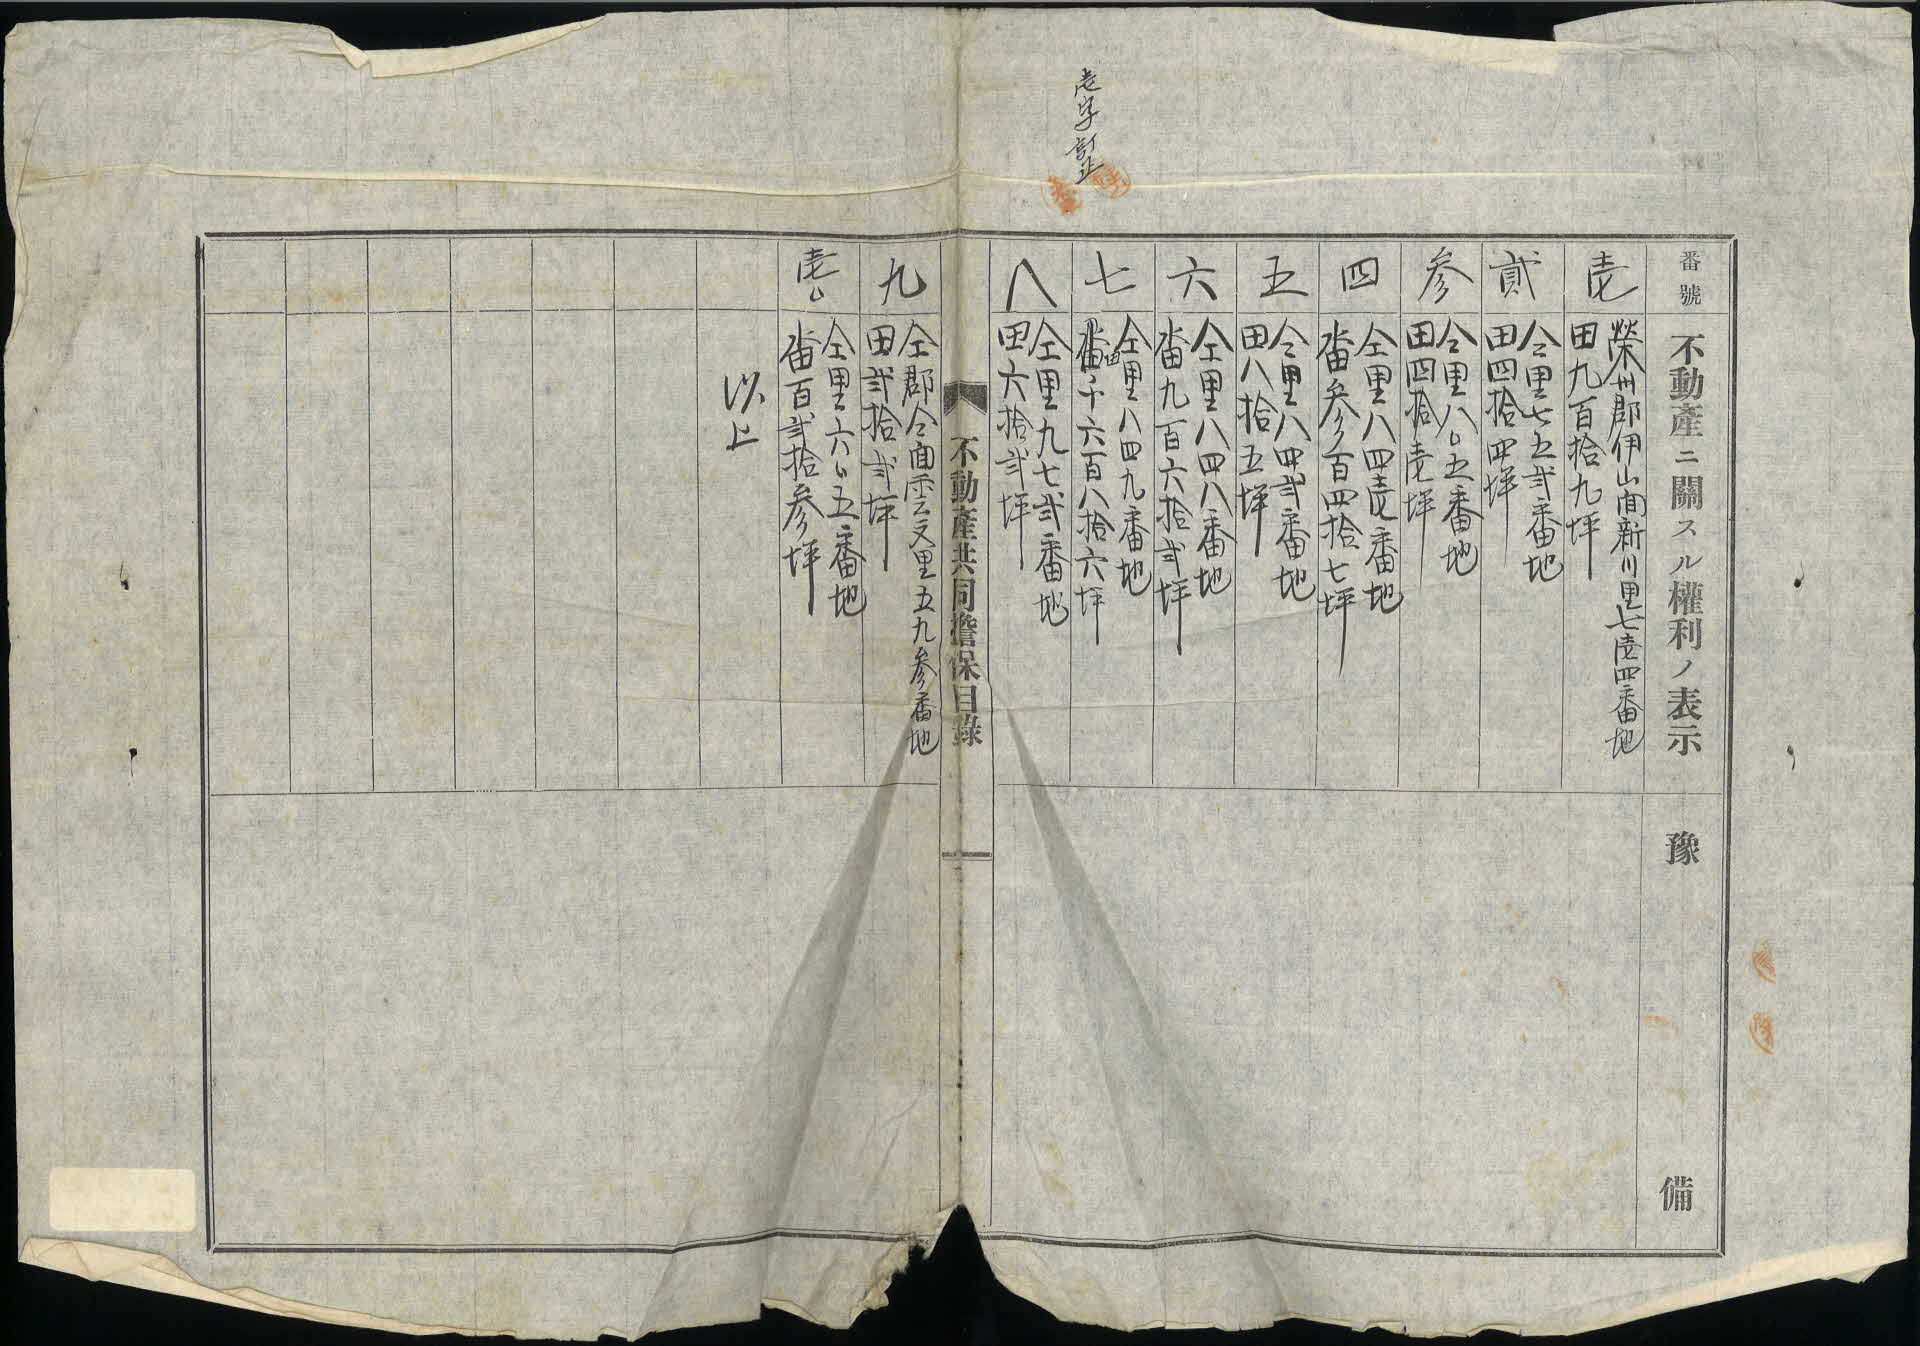 壱字訂正
番號
不動產ニ關スル權利ノ表示
豫備
壱
榮州郡伊山面新川里七壱四番地
田九百拾九坪
貳
仝里七五弐番地
田四拾四坪
参
仝里八〇五番地
田四拾壱坪
四
仝里八四壱番地
畓参百四拾七坪
五
仝里八四弐番地
田八拾五坪
六
仝里八四八番地
畓九百六拾弐坪
七
仝里八四九番地
田千六百八拾六坪
八
仝里九七弐番地
田六拾弐坪
不動產共同擔保目錄
九
仝郡仝面雲文里五九参番地
田弐拾弐坪
壱〇
仝里六〇五番地
畓百弐拾参坪
以上